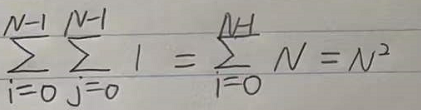 \sum_{i=0}^{N-1} \sum_{j=0}^{N-1} 1 = \sum_{i=0}^{N-1} N = N^2